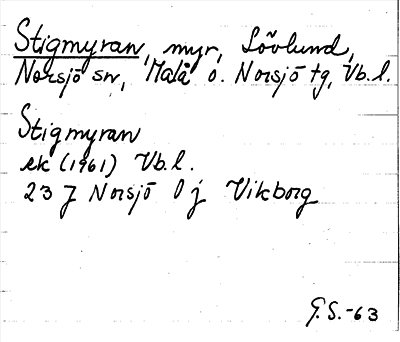 Stigmyran, myr, Lövlund,
Norsjö sn, Malå o. Norsjö tg, Vb.l.
Stigmyran
ek (1961) Vb.l.
23 J Norsjö 0 j Vikborg
G.S.-63